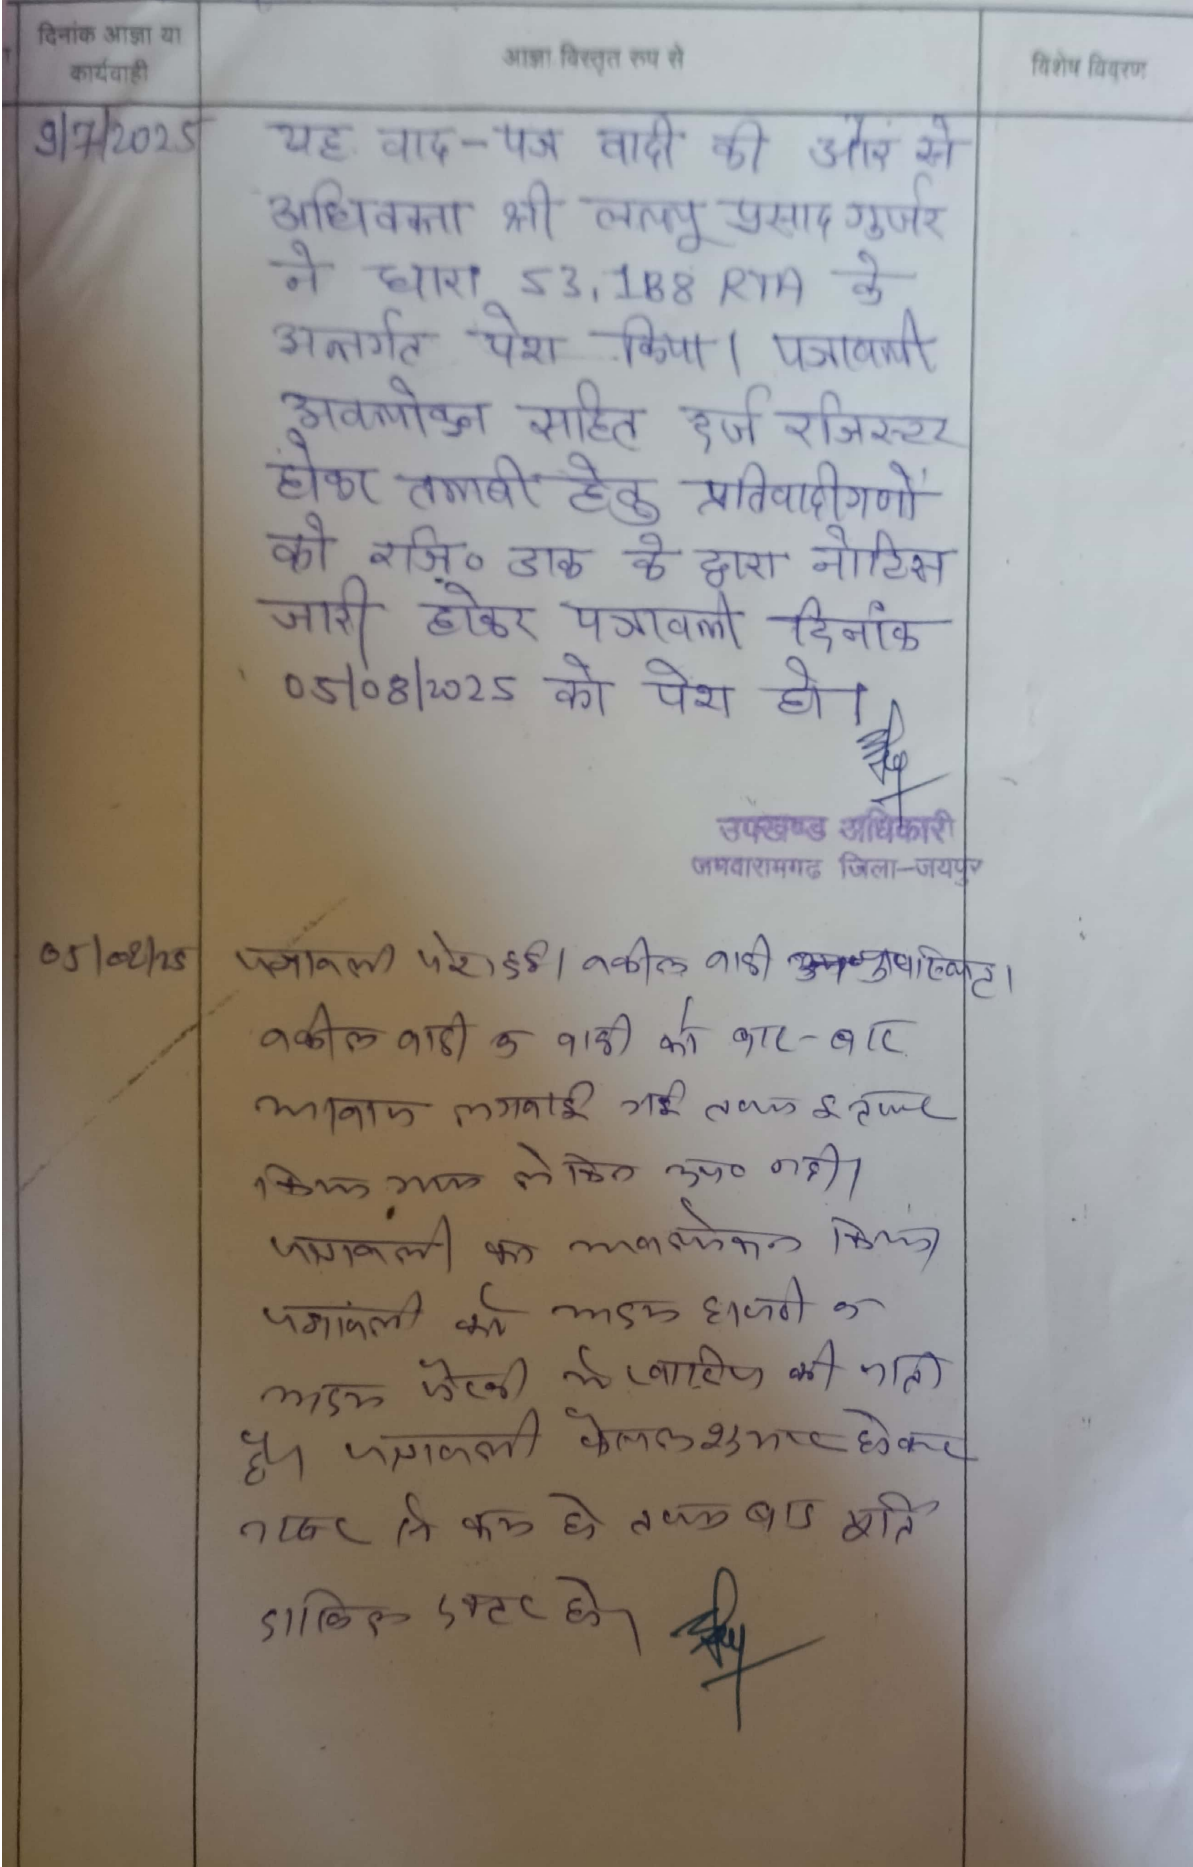 दिनांक आज्ञा या
कार्यवाही
आज्ञा विस्तृत रूप से
विशेष विवरण
9/7/2025 यह वाद-पत्र वादी की ओर से
अधिवक्ता श्री लल्लू प्रसाद गुर्जर
ने धारा 53, 188 RTA के
अन्तर्गत पेश किया। पत्रावली
अवलोकन सहित दर्ज रजिस्टर
होकर तलबी हेतु प्रतिवादीगणों
को रजि० डाक के द्वारा नोटिस
जारी होकर पत्रावली दिनांक
05/08/2025 को पेश हो।
उपखण्ड अधिकारी
जमवारामगढ जिला-जयपुर
05/08/25 पत्रावली पेश हुई। वकील वादी अनुपस्थित।
वकील वादी व वादी को बार-बार
आवाज लगवाई गई तथा इन्तजार
किया गया लेकिन उप० नहीं।
पत्रावली का अवलोकन किया
पत्रावली को अदम हाजरी व
अदम पैरवी में खारिज की जाती
है। पत्रावली फैसल शुमार होकर
नम्बर से कम हो तथा बाद पूर्ति
दाखिल दफ्तर हो।